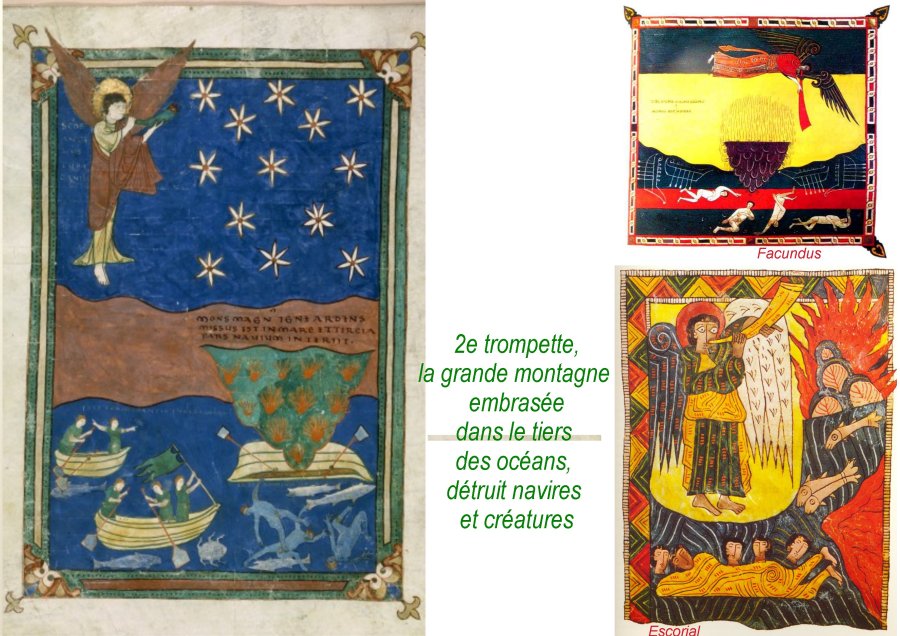 MONS MAGN IGNE ARDENS
MISSUS EST IN MARE ET TERCIA
PARS NAVIUM INTERIIT.
Facundus
2e trompette,
la grande montagne
embrasée
dans le tiers
des océans,
détruit navires
et créatures
Escorial